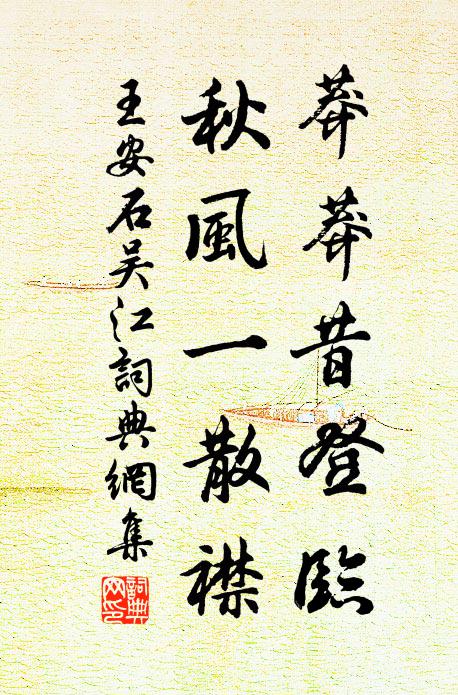 莽莽昔登臨
秋風一散襟
王安石吴江詞典網集
詞典網印